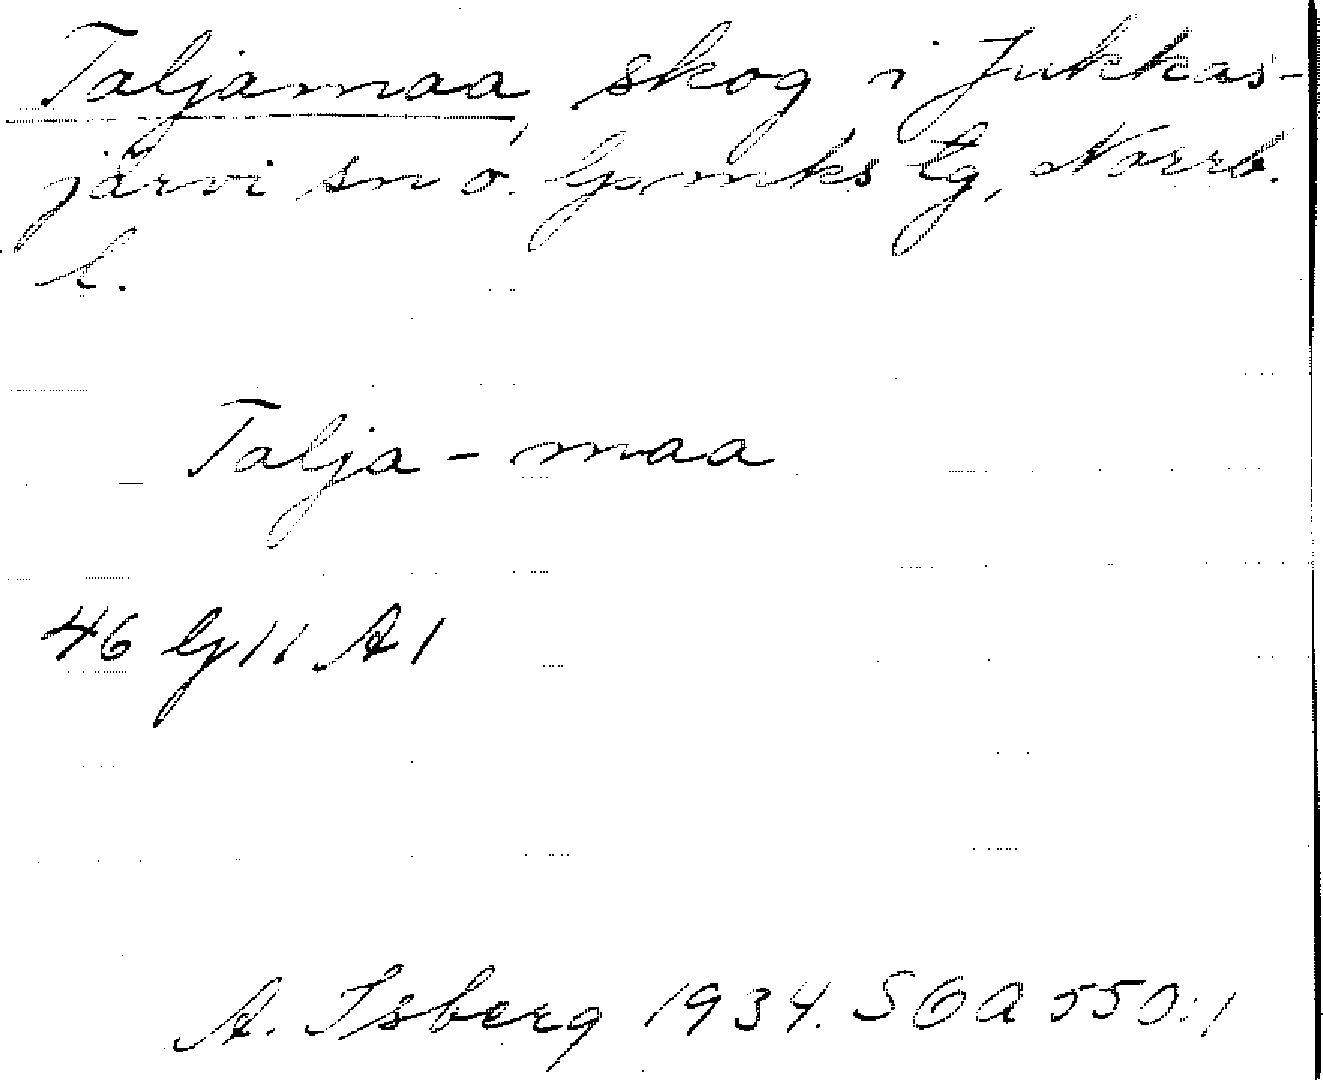 Taljamaa, skog i Jukkas-
järvi sn o. lpmks tg, Norrb.
l.
Talja-maa
46 G 11 A 1
A. Isberg 1934. SOA 550:1